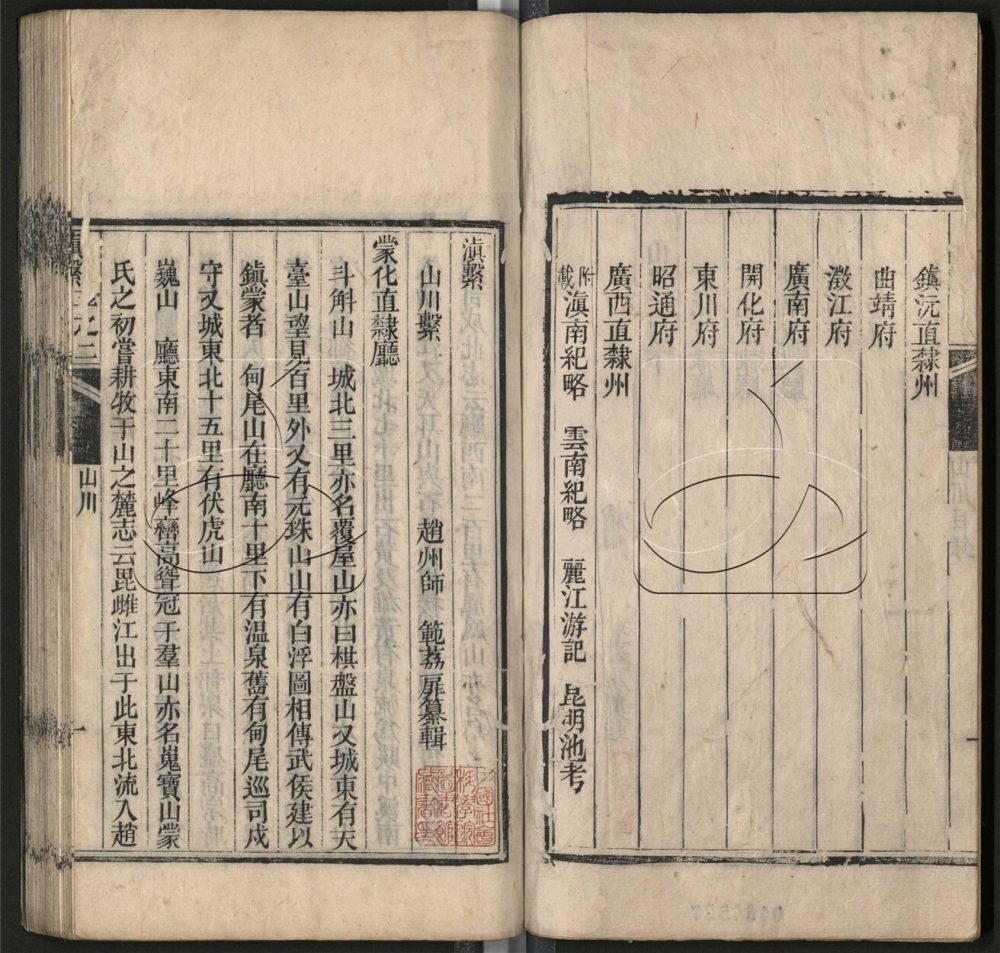 鎮沅直隸州
曲靖府
澂江府
廣南府
開化府
東川府
昭通府
廣西直隸州
附載滇南紀略　雲南紀略　麗江游記　昆明池考
滇繫
山川繫　趙州師　範荔扉纂輯
蒙化直隸廳
斗斛山　城北三里亦名覆屋山亦曰棋盤山又城東有天
臺山望見百里外又有元珠山山有白浮圖相傳武侯建以
鎮蒙者　甸尾山在廳南十里下有溫泉舊有甸尾巡司戍
守又城東北十五里有伏虎山
巍山　廳東南二十里峰巒高聳冠于羣山亦名嵬寶山蒙
氏之初嘗耕牧于山之麓志云毘雌江出于此東北流入趙
山川
一